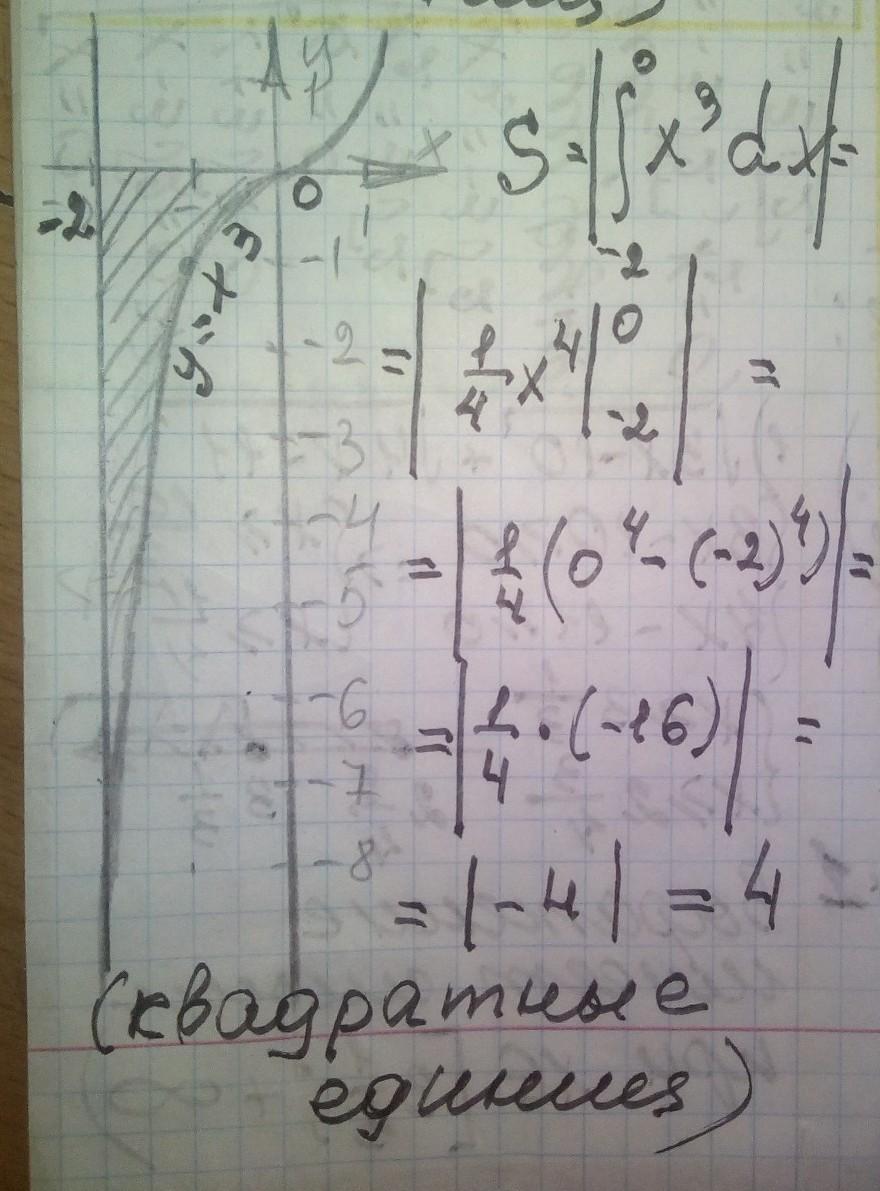 y
x
-2
0
1
y=x³
-1
-2
-3
-4
-5
-6
-7
-8
S=|∫₋₂⁰ x³ dx|=
=| 1/4 x⁴ |₋₂⁰ | =
=| 1/4 (0⁴ - (-2)⁴)|=
=| 1/4 · (-16)| =
= |-4| = 4
(квадратные
единиц)